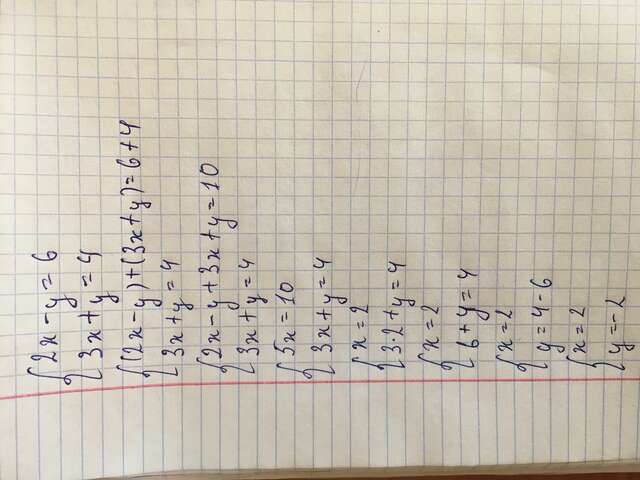 {2x-y=6
{3x+y=4
{(2x-y)+(3x+y)=6+4
{3x+y=4
{2x-y+3x+y=10
{3x+y=4
{5x=10
{3x+y=4
{x=2
{3·2+y=4
{x=2
{6+y=4
{x=2
{y=4-6
{x=2
{y=-2